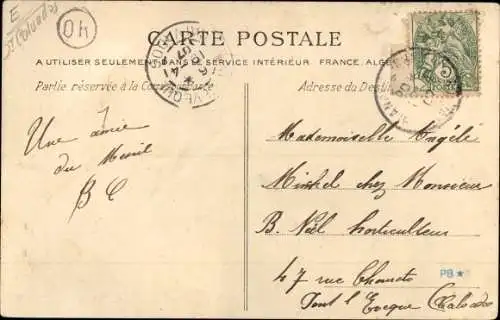 E
(Calvados)
40
CARTE POSTALE
A UTILISER SEULEMENT DANS LE SERVICE INTÉRIEUR FRANCE, ALGÉ
Partie réservée à la Correspondance
Adresse du Desti
Une amie
du Mesnil
B C
5
Mademoiselle Angèle
Michel chez Monsieur
B. Noël horticulteur
47 rue
Pont l'Eveque Calvados
PB ★